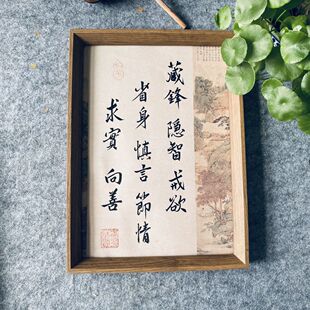 藏鋒 隐智 戒欲
省身 慎言 節情
求實 向善